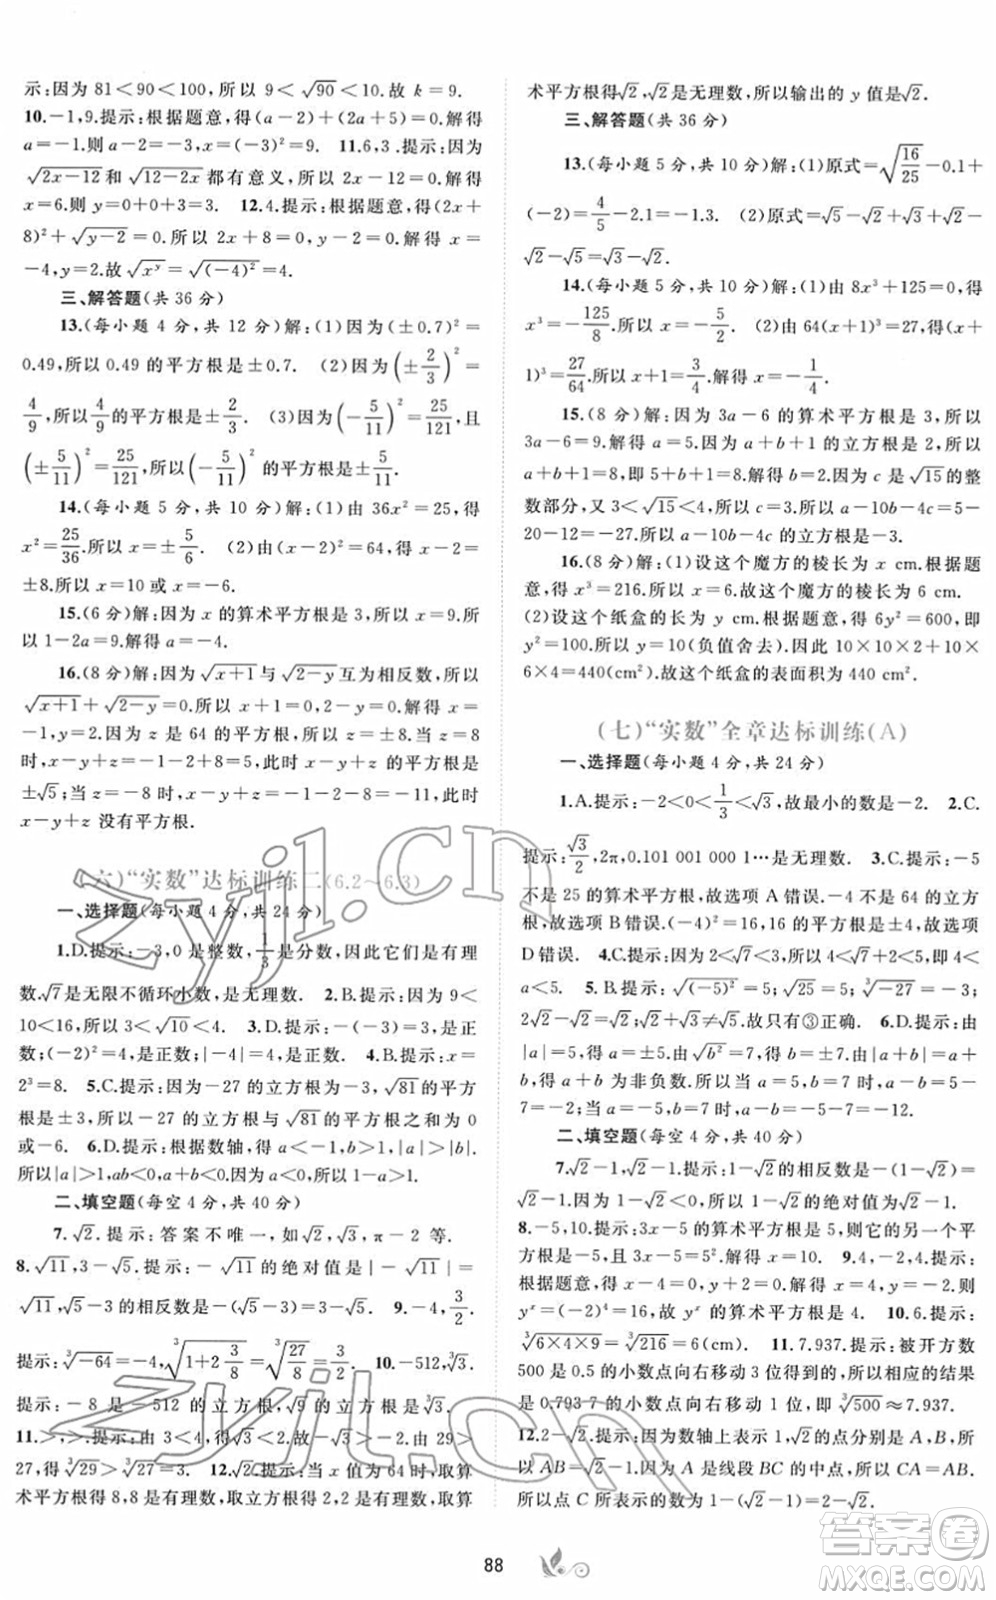 示:因为 81<90<100, 所以 9<√90<10.故 k=9.
10.-1,9.提示:根据题意,得(a-2)+(2a+5)=0.解得
a=-1.则 a-2=-3,x=(-3)²=9. 11.6,3.提示:因为
√(2x-12)和√(12-2x)都有意义,所以 12-2x=0.解得
x=6.则 y=0+0+3=3. 12.4.提示:根据题意,得(2x+
8)²+√(y-2)=0.所以 2x+8=0,y-2=0.解得 x=
-4,y=2.故√(x^y)=√((-4)²)=4.
三、解答题(共 36 分)
13.(每小题 4 分,共 12 分)解:(1)因为(±0.7)²=
0.49,所以 0.49 的平方根是±0.7. (2)因为(±2/3)²=
4/9,所以4/9的平方根是±2/3. (3)因为(-5/11)²=25/121,且
(±5/11)²=25/121,所以(-5/11)²的平方根是±5/11.
14.(每小题 5 分,共 10 分)解:(1)由 36x²=25,得
x²=25/36.所以 x=±5/6. (2)由(x-2)²=64,得 x-2=
±8.所以 x=10 或 x=-6.
15.(6 分)解:因为 x 的算术平方根是 3,所以 x=9.所
以 1-2a=9.解得 a=-4.
16.(8 分)解:因为√(x+1)与√(2-y)互为相反数,所以
√(x+1)+√(2-y)=0.所以 x+1=0,2-y=0.解得 x=
-1,y=2.因为 z 是 64 的平方根,所以 z=±8.当 z=8 时,
x-y+z=-1-2+8=5,此时 x-y+z 的平方根是
±√5;当 z=-8 时,x-y+z=-1-2-8=-11,此时
x-y+z 没有平方根.
(六)“实数”达标训练二(6.2~6.3)
一、选择题(每小题 4 分,共 24 分)
1.D.提示:-3,0 是整数,1/3是分数,因此它们是有理
数.√7是无限不循环小数,是无理数. 2.B.提示:因为 9<
10<16,所以 3<√10<4. 3.D.提示:-(-3)=3,0=
0,(-2)²=4,|-4|=4,所以最大. 4.B.提示:x=
2³=8. 5.C.提示:因为-27 的立方根是-3,√81的平方
根是±3,所以-27 的立方根与√81的平方根之和为 0
或-6. 6.D.提示:根据数轴,得 a<-1,b>1,|a|>|b|.
所以|a|>1,ab<0,a+b<0,1-a>1.
二、填空题(每空 4 分,共 40 分)
7.√2.提示:答案不唯一,如√2,√3,π-2 等.
8.√11,3-√5.提示:-√11的绝对值是|-√11|=
√11,√5-3 的相反数是-(√5-3)=3-√5. 9.-4,3/2.
提示:³√(-64)=-4,³√(1+2 3/8)=³√(27/8)=3/2. 10.-512,³√3.
提示:-8 是-512 的立方根,√9=3 的立方根是³√3.
11.>,>.提示:由 3<4,得√3<2.所以-√3>-2.由 29>
27,得³√29>³√27=3. 12.√2.提示:当 x=64 时,取算
术平方根得 8,8 是有理数,取立方根得 2,2 是有理数,取算
术平方根得√2,√2是无理数,所以输出的 y 值是√2.
三、解答题(共 36 分)
13.(每小题 5 分,共 10 分)解:(1)原式=√(16/25)-0.1+
(-2)=4/5-2.1=-1.3. (2)原式=√5-√2+√3+√2-
√5-√2=√3-√2.
14.(每小题 5 分,共 10 分)解:(1)由 8x³+125=0,得
x³=-125/8.所以 x=-5/2. (2)由 64(x+1)³=27,得(x+
1)³=27/64.所以 x+1=3/4.解得 x=-1/4.
15.(8 分)解:因为 3a-6 的算术平方根是 3,所以
3a-6=9.解得 a=5.因为 a+b+1 的立方根是 2,所以
a+b+1=8,即 5+b+1=8.解得 b=2.因为 c 是√15的整
数部分,又 3<√15<4,所以 c=3.所以 a-10b-4c=5-
20-12=-27.所以 a-10b-4c 的立方根为-3.
16.(8 分)解:(1)设这个魔方的棱长为 x cm.根据题
意,得 x³=216.所以 x=6.故这个魔方的棱长为 6 cm.
(2)设这个纸盒的长为 y cm.根据题意,得 6y²=600,即
y²=100.所以 y=10(负值舍去).因此 10×10×2+10×
6×4=440(cm²).故这个纸盒的表面积为 440 cm².
(七)“实数”全章达标训练(A)
一、选择题(每小题 4 分,共 24 分)
1.A.提示:-2<0<1/3<√3,故最小的数是-2. 2.C.
提示:√3/2,0.101 001 000 1…是无理数. 3.C.提示:-5
不是 25 的算术平方根,故选项 A 错误.-4<0,-4 没有平
方根,故选项 B 错误.(-4)²=16,16 的平方根是±4,故选项
D 错误. 4.C.提示:因为 2<√7<3,所以 4<√7+2<5,即 4<
a<5. 5.B.提示:√((-5)²)=5;√25=5;³√(-27)=-3;
2√2-√2=√2;√2+√3≠√5.故只有③正确. 6.D.提示:由
|a|=5,得 a=±5.由√(b²)=7,得 b=±7.由|a+b|=a+
b,得 a+b 为非负数.所以当 a=5,b=7 时,a-b=5-
7=-2;当 a=-5,b=7 时,a-b=-5-7=-12.
二、填空题(每空 4 分,共 40 分)
7.√2-1,√2-1.提示:1-√2的相反数是-(1-√2)=
√2-1.因为 1-√2<0,所以 1-√2的绝对值为√2-1.
8.-5,10.提示:3x-5 的算术平方根是 5,则它的另一个平
方根是-5,且 3x-5=5².解得 x=10. 9.4,-2,4.提示:
根据题意,得 x-4=0,y+2=0.解得 x=4,y=-2.则
y^x=(-2)⁴=16.故 y^x 的算术平方根是 4. 10.6.提示:
³√(6×4×9)=³√216=6(cm). 11.7.937.提示:被开方数
500 是 0.5 的小数点向右移动 3 位得到的,所以所得结果
是 0.793 7 的小数点向右移动 1 位,即³√500≈7.937.
12.2-√2.提示:因为数轴上表示 1,√2的点分别是 A,B,所
以 AB=√2-1.因为 A 是线段 BC 的中点,所以 CA=AB.
所以点 C 所表示的数为 1-(√2-1)=2-√2.
88
zyjl.cn
zyjl.cn
答案圈
MXQE.COM